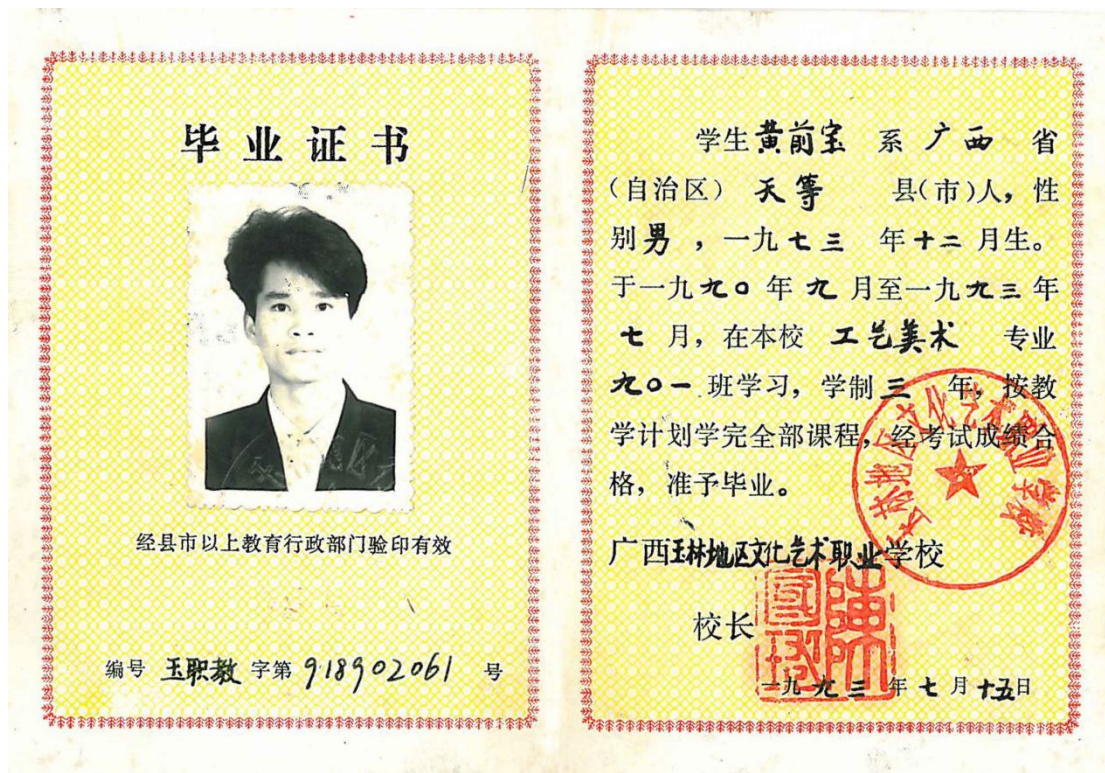 毕业证书
经县市以上教育行政部门验印有效
编号 玉职教 字第 918902061 号
学生黄前宝 系 广西 省
（自治区） 天等 县(市)人，性
别男 ，一九七三 年十二月生。
于一九九〇年九月至一九九三年
七月，在本校 工艺美术 专业
九〇一班学习，学制三年，按教
学计划学完全部课程，经考试成绩合
格，准予毕业。
广西玉林地区文化艺术职业学校
校长
一九九三年七月十五日
玉林地区文化艺术职业学校